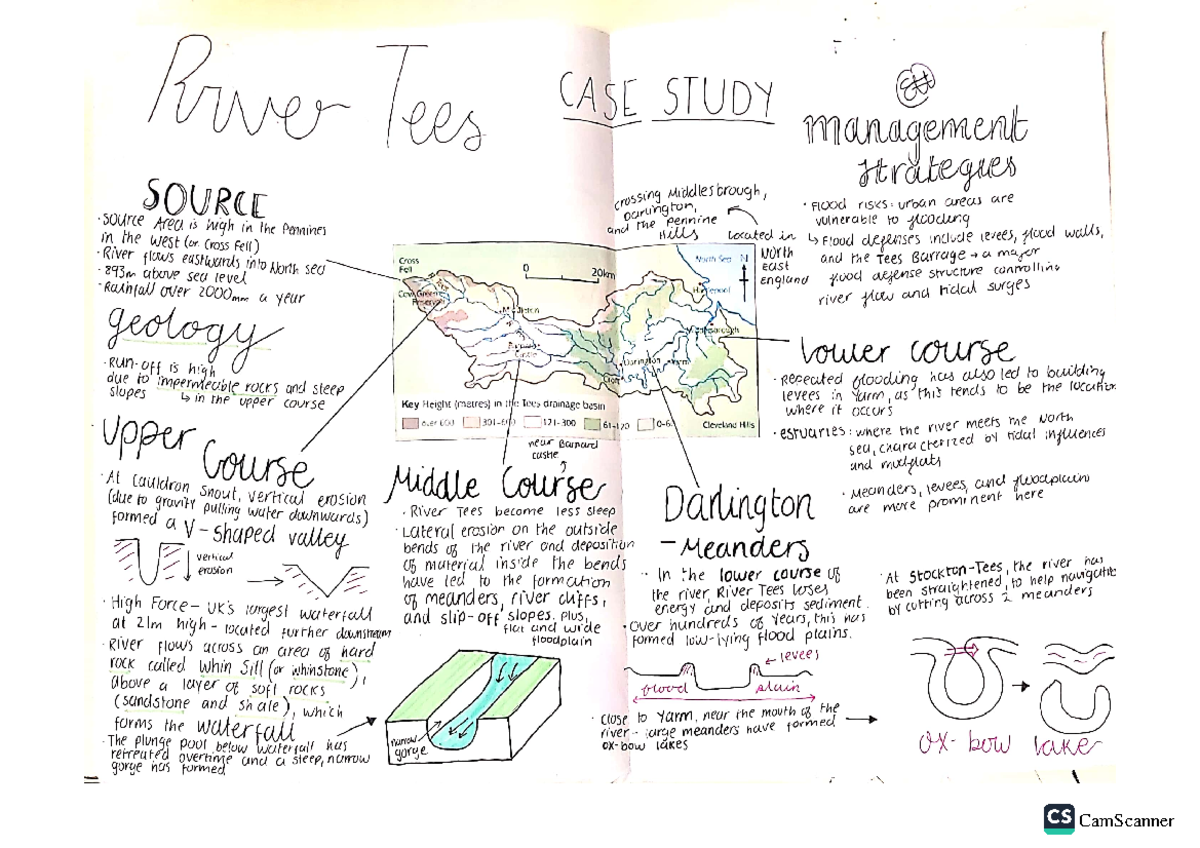 River Tees
CASE STUDY
Management
Strategies
SOURCE
· Source Area is high in the Pennines
in the west (or Cross Fell)
· River flows eastwards into North sea
· 893m above sea level
· Rainfall over 2000mm a year
geology
· Run-off is high
due to impermeable rocks and steep
slopes ↳ in the upper course
Upper
Course
· At Cauldron Snout, vertical erosion
(due to gravity pulling water downwards)
formed a V-shaped valley
vertical
erosion
· High Force- UK's largest waterfall
at 21m high - located further downstream
· River flows across an area of hard
rock called Whin Sill (or whinstone),
above a layer of soft rocks
(sandstone and shale), which
forms the waterfall
· The plunge pool below waterfall has
retreated overtime and a steep, narrow
gorge has formed
crossing Middlesbrough,
Darlington,
and the Pennine
Hills
located in
North
East
England
Cross
Fell
0 20km
North Sea N
Cow Green
Reservoir
Middlesbrough
Darlington
Cleveland Hills
Key Height (metres) in the Tees drainage basin
over 600 301-600 121-300 61-120 0-6
near Barnard
castle
Middle Course
· River Tees become less steep
· Lateral erosion on the outside
bends of the river and deposition
of material inside the bends
have led to the formation
of meanders, river cliffs,
and slip-off slopes. plus,
flat and wide
floodplain
narrow
gorge
Darlington
- Meanders
· In the lower course of
the river, River Tees loses
energy and deposits sediment.
· Over hundreds of years, this has
formed low-lying flood plains.
← levees
flood plain
· Close to Yarm, near the mouth of the
river - large meanders have formed
ox-bow lakes
· Flood risks: urban areas are
vulnerable to flooding
↳ Flood defenses include levees, flood walls,
and the Tees Barrage → a major
flood defense structure controlling
river flow and tidal surges
Lower course
· Repeated flooding has also led to building
levees in Yarm, as this tends to be the location
where it occurs
· estuaries: where the river meets the North
sea, characterized by tidal influences
and mudflats
· Meanders, levees, and floodplains
are more prominent here
· At Stockton-Tees, the river has
been straightened, to help navigation
by cutting across 2 meanders
ox-bow lake
CS CamScanner